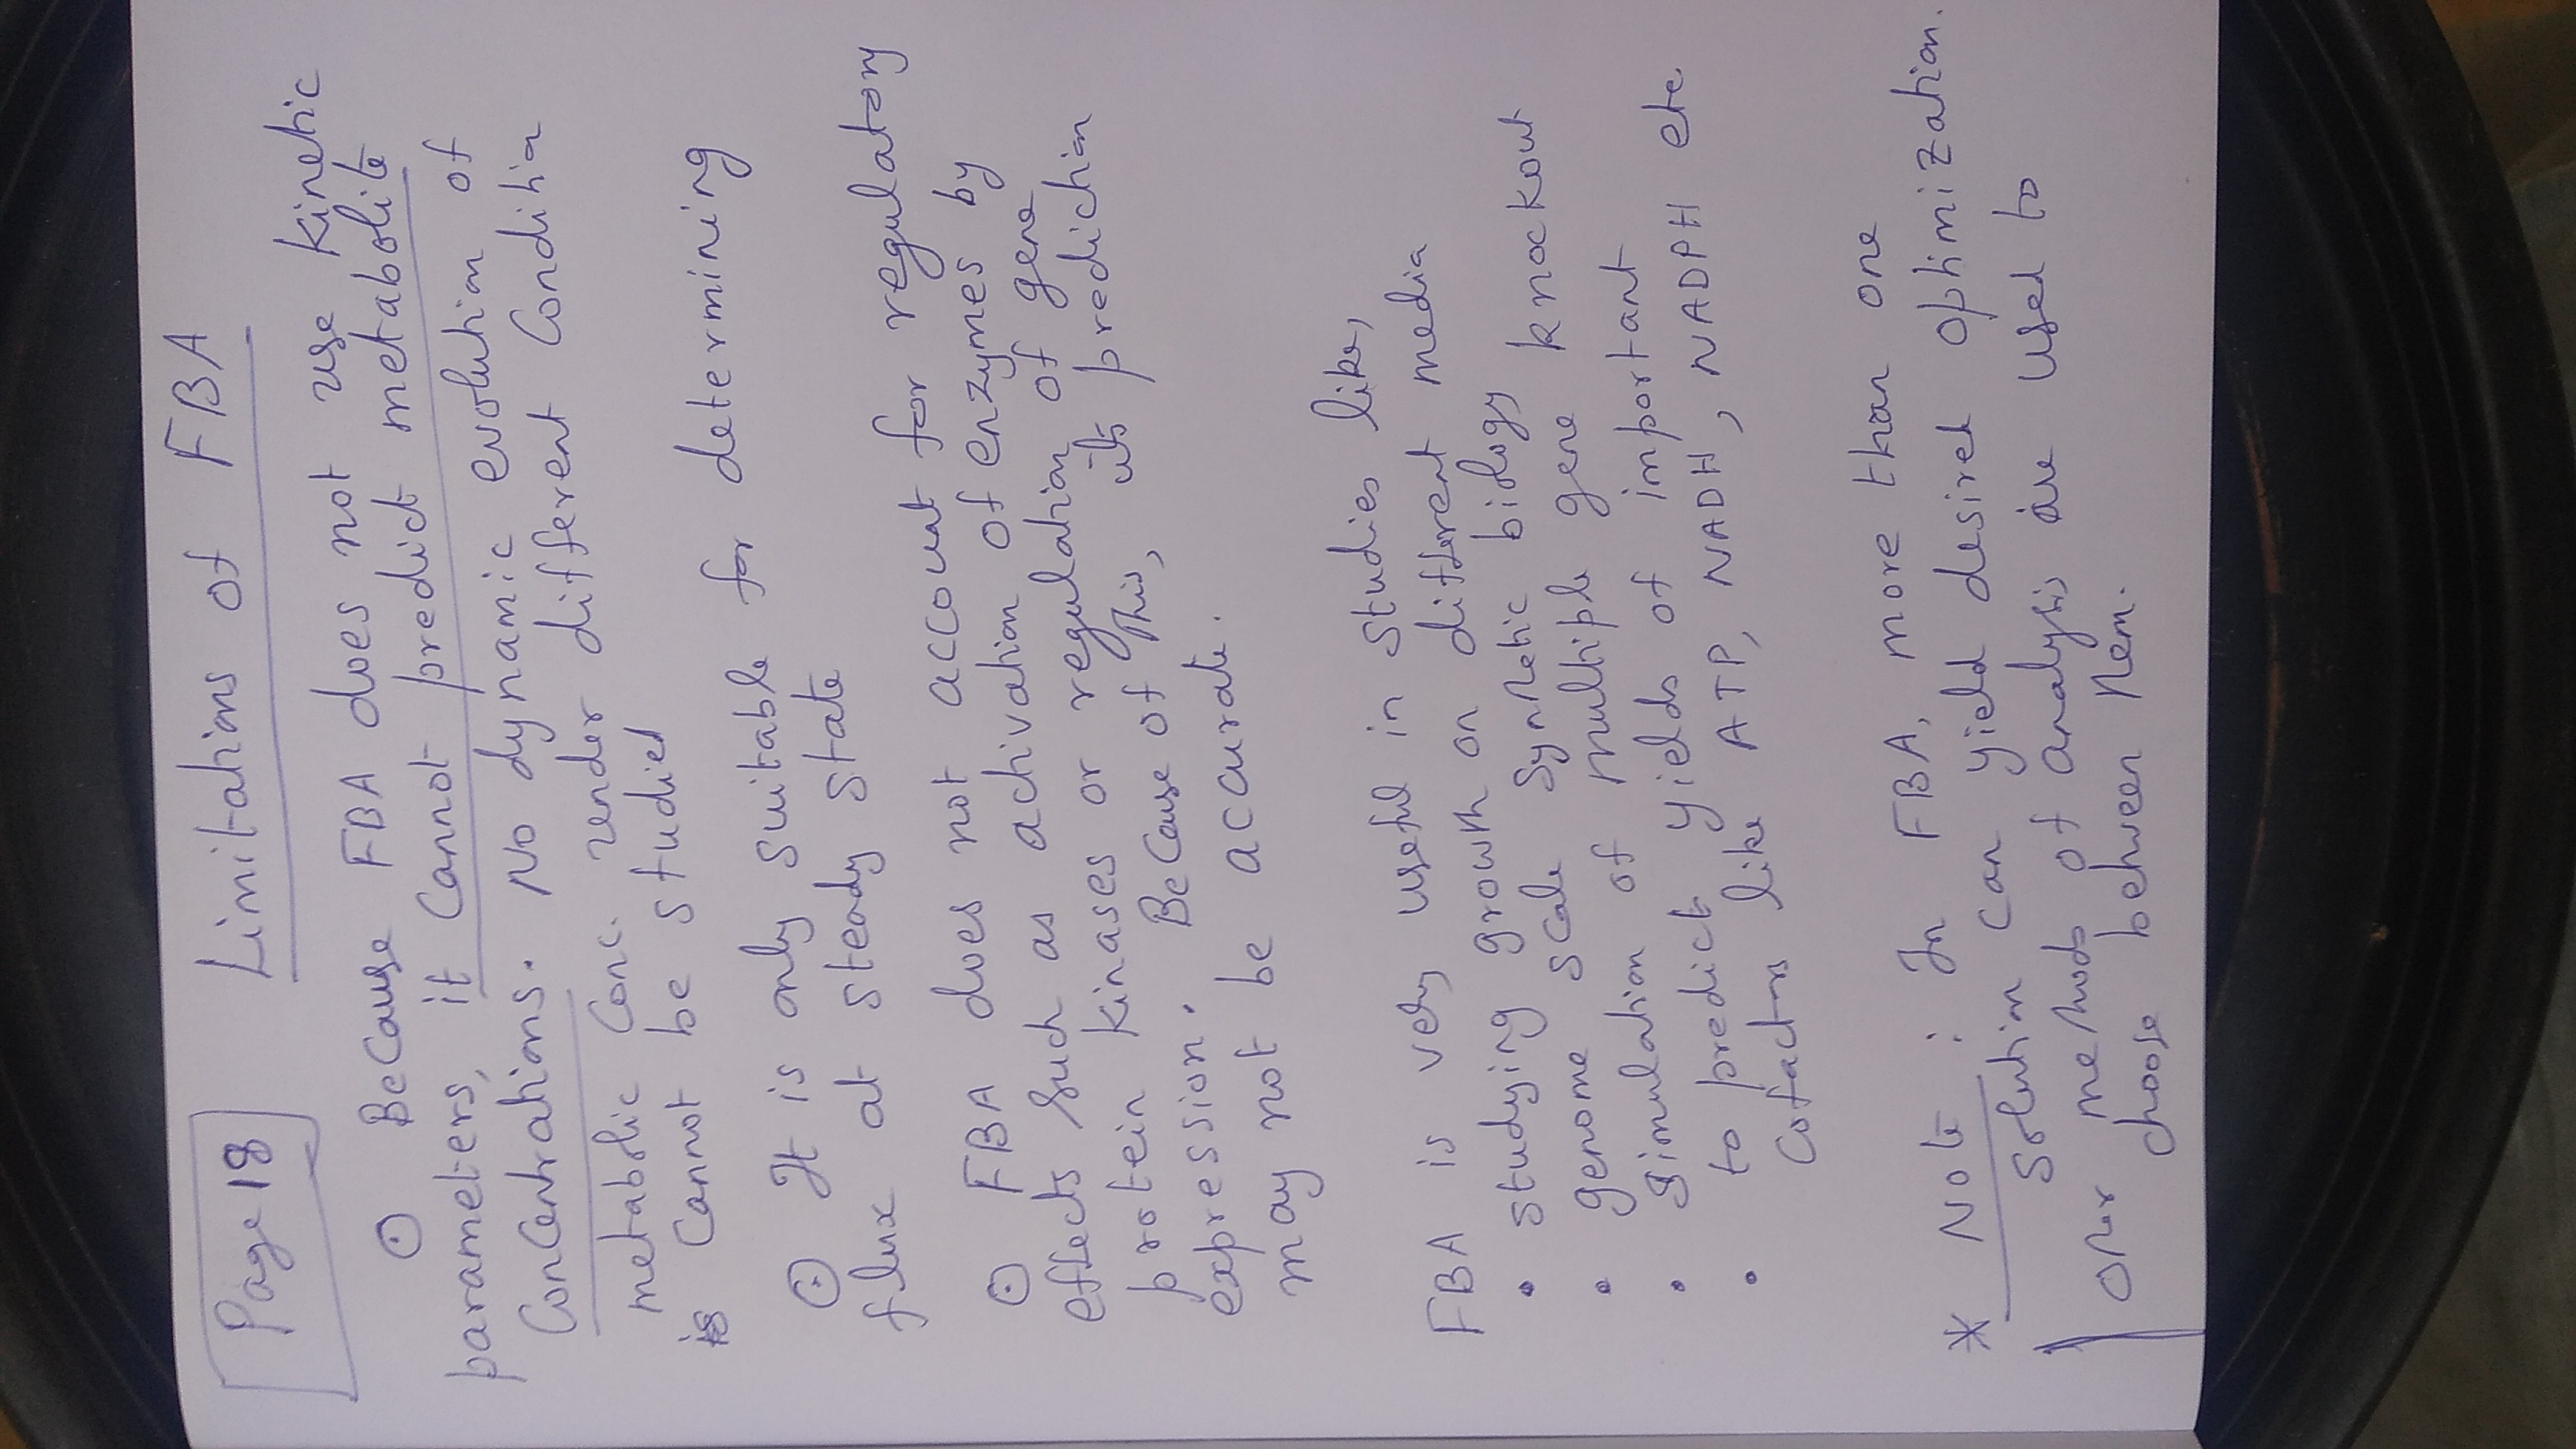 Page 18
Limitations of FBA
⊙ Because FBA does not use kinetic
parameters, it cannot predict metabolite
concentrations. No dynamic evolution of
metabolic conc. under different condition
is cannot be studied
⊙ It is only suitable for determining
flux at steady state
⊙ FBA does not account for regulatory
effects such as activation of enzymes by
protein kinases or regulation of gene
expression. Because of this, its prediction
may not be accurate.
FBA is very useful in studies like,
• studying growth on different media
• genome scale synthetic biology
• simulation of multiple gene knockout
• to predict yields of important
cofactors like ATP, NADH, NADPH etc
* Note : In FBA, more than one
solution can yield desired optimization.
Other methods of analysis are used to
choose between them.